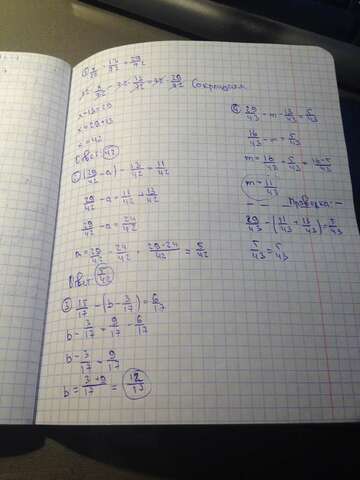 1) x/32 - 13/32 = 29/32
32 · x/32 - 32 · 13/32 = 32 · 29/32 Сократили
x-13=29
x=29+13
x=42
Ответ: 42
2) (29/42 - a) - 13/42 = 11/42
29/42 - a = 11/42 + 13/42
29/42 - a = 24/42
a = 29/42 - 24/42 = 29-24/42 = 5/42
Ответ: 5/42
3) 15/17 - (b - 3/17) = 6/17
b - 3/17 = 9/17 - 6/17
b - 3/17 = 9/17
b = 3+9/17 = 12/17
4) 29/43 - m - 13/43 = 5/43
16/43 - m = 5/43
m = 16/43 - 5/43 = 16-5/43
m = 11/43
- Проверка: -
29/43 - (11/43 + 13/43) = 5/43
5/43 = 5/43